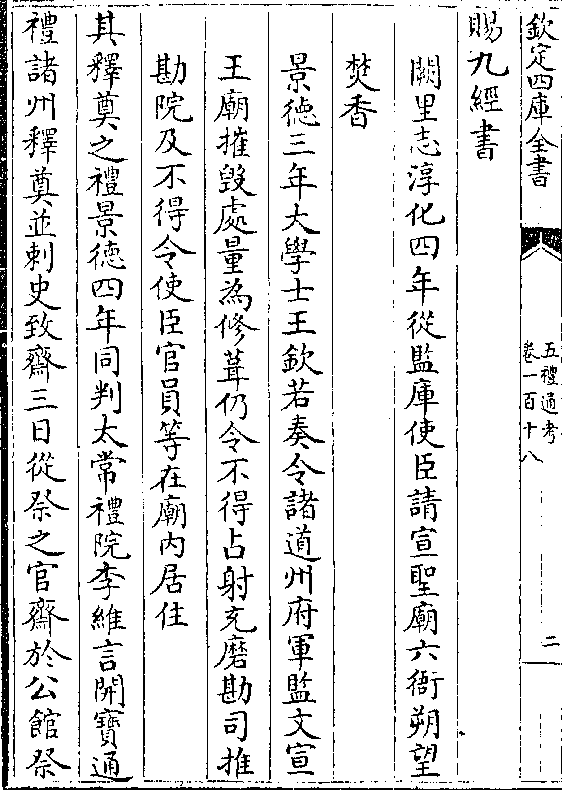 欽定四庫全書
五禮通考
卷一百十八
二
賜九經書
闕里志淳化四年從監庫使臣請宣聖廟六衙朔望
焚香
景徳三年大學士王欽若奏令諸道州府軍監文宣
王廟摧毁處量為修葺仍令不得占射充磨勘司推
勘院及不得令使臣官員等在廟內居住
其釋奠之禮景德四年同判太常禮院李維言開寶通
禮諸州釋奠並刺史致齋三日從祭之官齋於公館祭